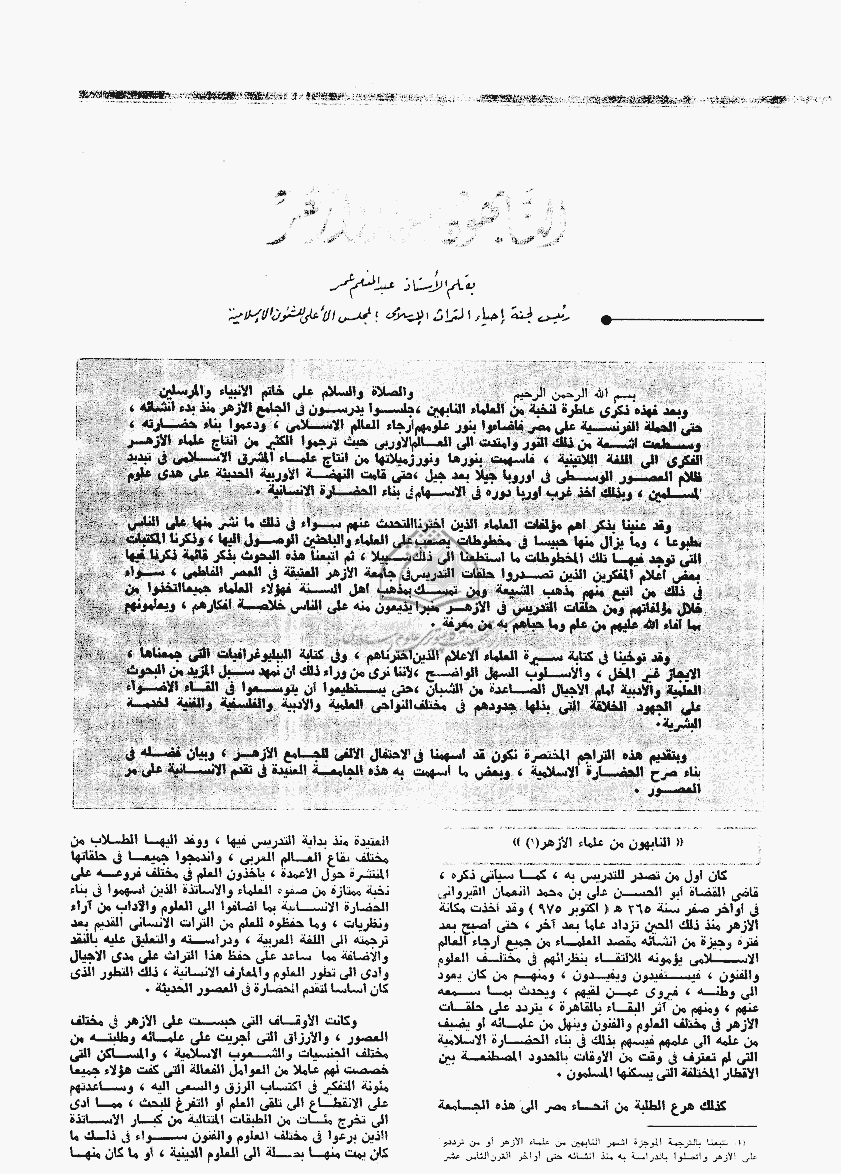 النابهون من علماء الأزهر
بقلم الأستاذ عبد المنعم عمر
رئيس لجنة إحياء التراث الإسلامى بالمجلس الأعلى للشئون الإسلامية
بسم الله الرحمن الرحيم والصلاة والسلام على خاتم الأنبياء والمرسلين
وبعد فهذه ذكرى عاطرة لنخبة من العلماء النابهين ، جلسوا يدرسون فى الجامع الأزهر منذ بدء انشائه ،
حتى الحملة الفرنسية على مصر فأضاءوا بنور علومهم أرجاء العالم الاسلامى ، ودعموا بناء حضارته ،
وسطعت أشعة من ذلك النور وامتدت الى العالم الأوربى حيث ترجموا الكثير من انتاج علماء الأزهر
الفكرى الى اللغة اللاتينية ، فأسهمت بنورها ونور زميلاتها من انتاج علماء المشرق الاسلامى فى تبديد
ظلام العصور الوسطى فى اوروبا جيلا بعد جيل ، حتى قامت النهضة الأوربية الحديثة على هدى علوم
المسلمين ، وبذلك أخذ غرب اوربا دوره فى الاسهام فى بناء الحضارة الانسانية .
وقد عنينا بذكر اهم مؤلفات العلماء الذين اخترنا التحدث عنهم سواء فى ذلك ما نشر منها على الناس
مطبوعا ، وما يزال منها حبيسا فى مخطوطات يصعب على العلماء والباحثين الوصول اليها ، وذكرنا المكتبات
التى توجد فيها تلك المخطوطات ما استطعنا الى ذلك سبيلا ، ثم اتبعنا هذه البحوث بذكر قائمة ذكرنا فيها
بعض أعلام المفكرين الذين تصدروا حلقات التدريس فى جامعة الأزهر العتيقة فى العصر الفاطمى ، سواء
فى ذلك من اتبع منهم مذهب الشيعة ومن تمسك بمذهب اهل السنة فهؤلاء العلماء جميعا اتخذوا من
خلال مؤلفاتهم ومن حلقات التدريس فى الأزهر منبرا يذيعون منه على الناس خلاصة افكارهم ، ويعلمونهم
بما أفاء الله عليهم من علم وما حباهم به من معرفة .
وقد توخينا فى كتابة سيرة العلماء الاعلام الذين اخترناهم ، وفى كتابة الببليوغرافيات التى جمعناها ،
الايجاز غير المخل ، والأسلوب السهل الواضح ، لأننا نرى من وراء ذلك ان نمهد سبيل المزيد من البحوث
العلمية والأدبية أمام الاجيال الصاعدة من الشبان ، حتى يستطيعوا أن يتوسعوا فى القاء الأضواء
على الجهود الخلاقة التى بذلها جدودهم فى مختلف النواحى العلمية والادبية والفلسفية والفنية لخدمة
البشرية .
وبتقديم هذه التراجم المختصرة نكون قد أسهمنا فى الاحتفال الألفى للجامع الأزهر ، وبيان فضله فى
بناء صرح الحضارة الاسلامية ، وبعض ما أسهمت به هذه الجامعة العتيدة فى تقدم الانسانية على مر
العصور .
(( النابهون من علماء الأزهر(١) ))
كان أول من تصدر للتدريس به ، كما سيأتى ذكره ،
قاضى القضاة أبو الحسن على بن محمد النعمان القيروانى
فى أواخر صفر سنة ٣٦٥ هـ ( أكتوبر ٩٧٥ ) وقد أخذت مكانة
الأزهر منذ ذلك الحين تزداد عاما بعد آخر ، حتى أصبح بعد
فترة وجيزة من انشائه مقصد العلماء من جميع أرجاء العالم
الاسلامى يؤمونه للالتقاء بنظرائهم فى مختلف العلوم
والفنون ، فيستفيدون ويفيدون ، ومنهم من كان يعود
الى وطنه ، فيروى عمن لقيهم ، ويحدث بما سمعه
عنهم ، ومنهم من آثر البقاء بالقاهرة ، يتردد على حلقات
الأزهر فى مختلف العلوم والفنون وينهل من علمائه أو يضيف
من علمه الى علمهم فيسهم بذلك فى بناء الحضارة الاسلامية
التى لم تعترف فى وقت من الأوقات بالحدود المصطنعة بين
الأقطار المختلفة التى يسكنها المسلمون .
كذلك هرع الطلبة من أنحاء مصر الى هذه الجامعة
(١) تتبعنا بالترجمة الموجزة أشهر النابهين من علماء الأزهر أو من ترددوا
على الأزهر واتصلوا بالدراسة به منذ انشائه حتى أواخر القرن الثامن عشر
العتيدة منذ بداية التدريس فيها ، ووفد اليها الطلاب من
مختلف بقاع العالم العربى ، واندمجوا جميعا فى حلقاتها
المنتشرة حول الأعمدة ، يأخذون العلم فى مختلف فروعه على
نخبة ممتازة من صفوة العلماء والاساتذة الذين أسهموا فى بناء
الحضارة الانسانية بما أضافوا الى العلوم والآداب من آراء
ونظريات ، وما حفظوه للعلم من التراث الانسانى القديم بعد
ترجمته الى اللغة العربية ، ودراسته والتعليق عليه بالنقد
والاضافة مما ساعد على حفظ هذا التراث على مدى الاجيال
وأدى الى تطور العلوم والمعارف الانسانية ، ذلك التطور الذى
كان أساسا لتقدم الحضارة فى العصور الحديثة .
وكانت الأوقاف التى حبست على الأزهر فى مختلف
العصور ، والأرزاق التى أجريت على علمائه وطلبته من
مختلف الجنسيات والشعوب الاسلامية ، والمساكن التى
خصصت لهم عاملا من العوامل الفعالة التى كفت هؤلاء جميعا
مئونة التفكير فى اكتساب الرزق والسعى اليه ، وساعدتهم
على الانقطاع الى تلقى العلم أو التفرغ للبحث ، مما أدى
الى تخرج مئات من الطبقات المتتالية من كبار الأساتذة
الذين برعوا فى مختلف العلوم والفنون سواء فى ذلك ما
كان يمت منها بصلة الى العلوم الدينية ، أو ما كان منها